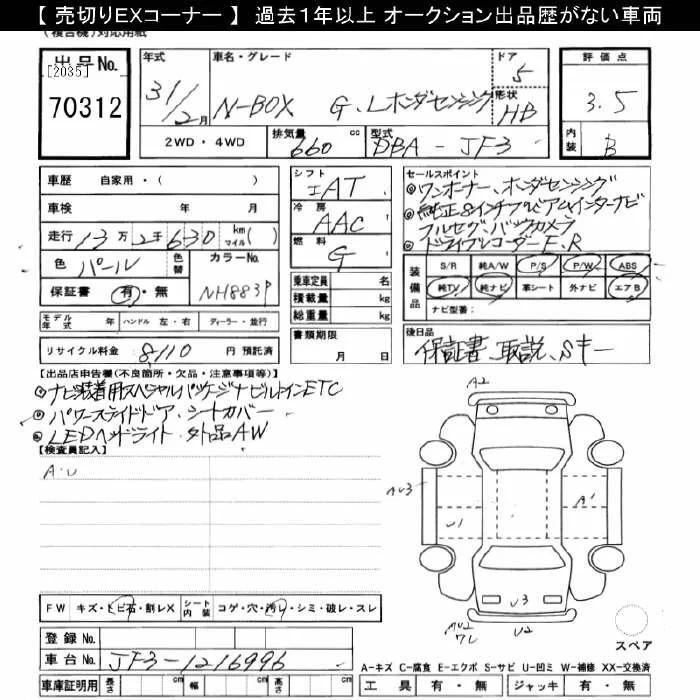 【 売切りEXコーナー 】 過去1年以上 オークション出品歴がない車両
(複合機)対応用紙
出品No.
[2035]
70312
年式
31/2月
車名・グレード
N-BOX G.Lホンダセンシング
ドア
5
形状
HB
評価点
3.5
内装
B
2WD・4WD
排気量 660 cc
型式 DBA-JF3
車歴 自家用・( )
車検 年 月
走行 13万2千630 km マイル( )
色 パール
色替
カラーNo. NH883P
保証書 有・無
シフト
エAT
冷房
AAC
燃料
G
乗車定員 名
積載量 kg
総重量 kg
セールスポイント
◎ワンオーナー、ホンダセンシング
◎純正8インチプレミアムインターナビ
フルセグ、バックカメラ
◎ドライブレコーダーF、R
装備品
S/R 純A/W P/S P/W ABS
純TV 純ナビ 革シート 外ナビ エアB
ナビ型番:
モデル年式 年 ハンドル 左・右 ディーラー・並行
リサイクル料金 8,110 円 預託済
書類期限
月 日
後日品
保証書、取説、Sキー
【出品店申告欄(不良箇所・欠品・注意事項等)】
◎ナビ装着用スペシャルパッケージナビルトインETC
◎パワースライドドア、シートカバー
◎LEDヘッドライト 外品AW
【検査員記入】
A・U
A2
AU3
U1
A1
U3
AU2
U2
スペア
FW キズ・トビ石・割レX
シート内装 コゲ・穴・汚レ・シミ・破レ・スレ
登録 No.
車台 No. JF3-1216996
車庫証明用 長さ cm 幅 cm 高さ cm
A-キズ C-腐食 E-エクボ S-サビ U-凹ミ W-補修 XX-交換済
工具 有・無 ジャッキ 有・無